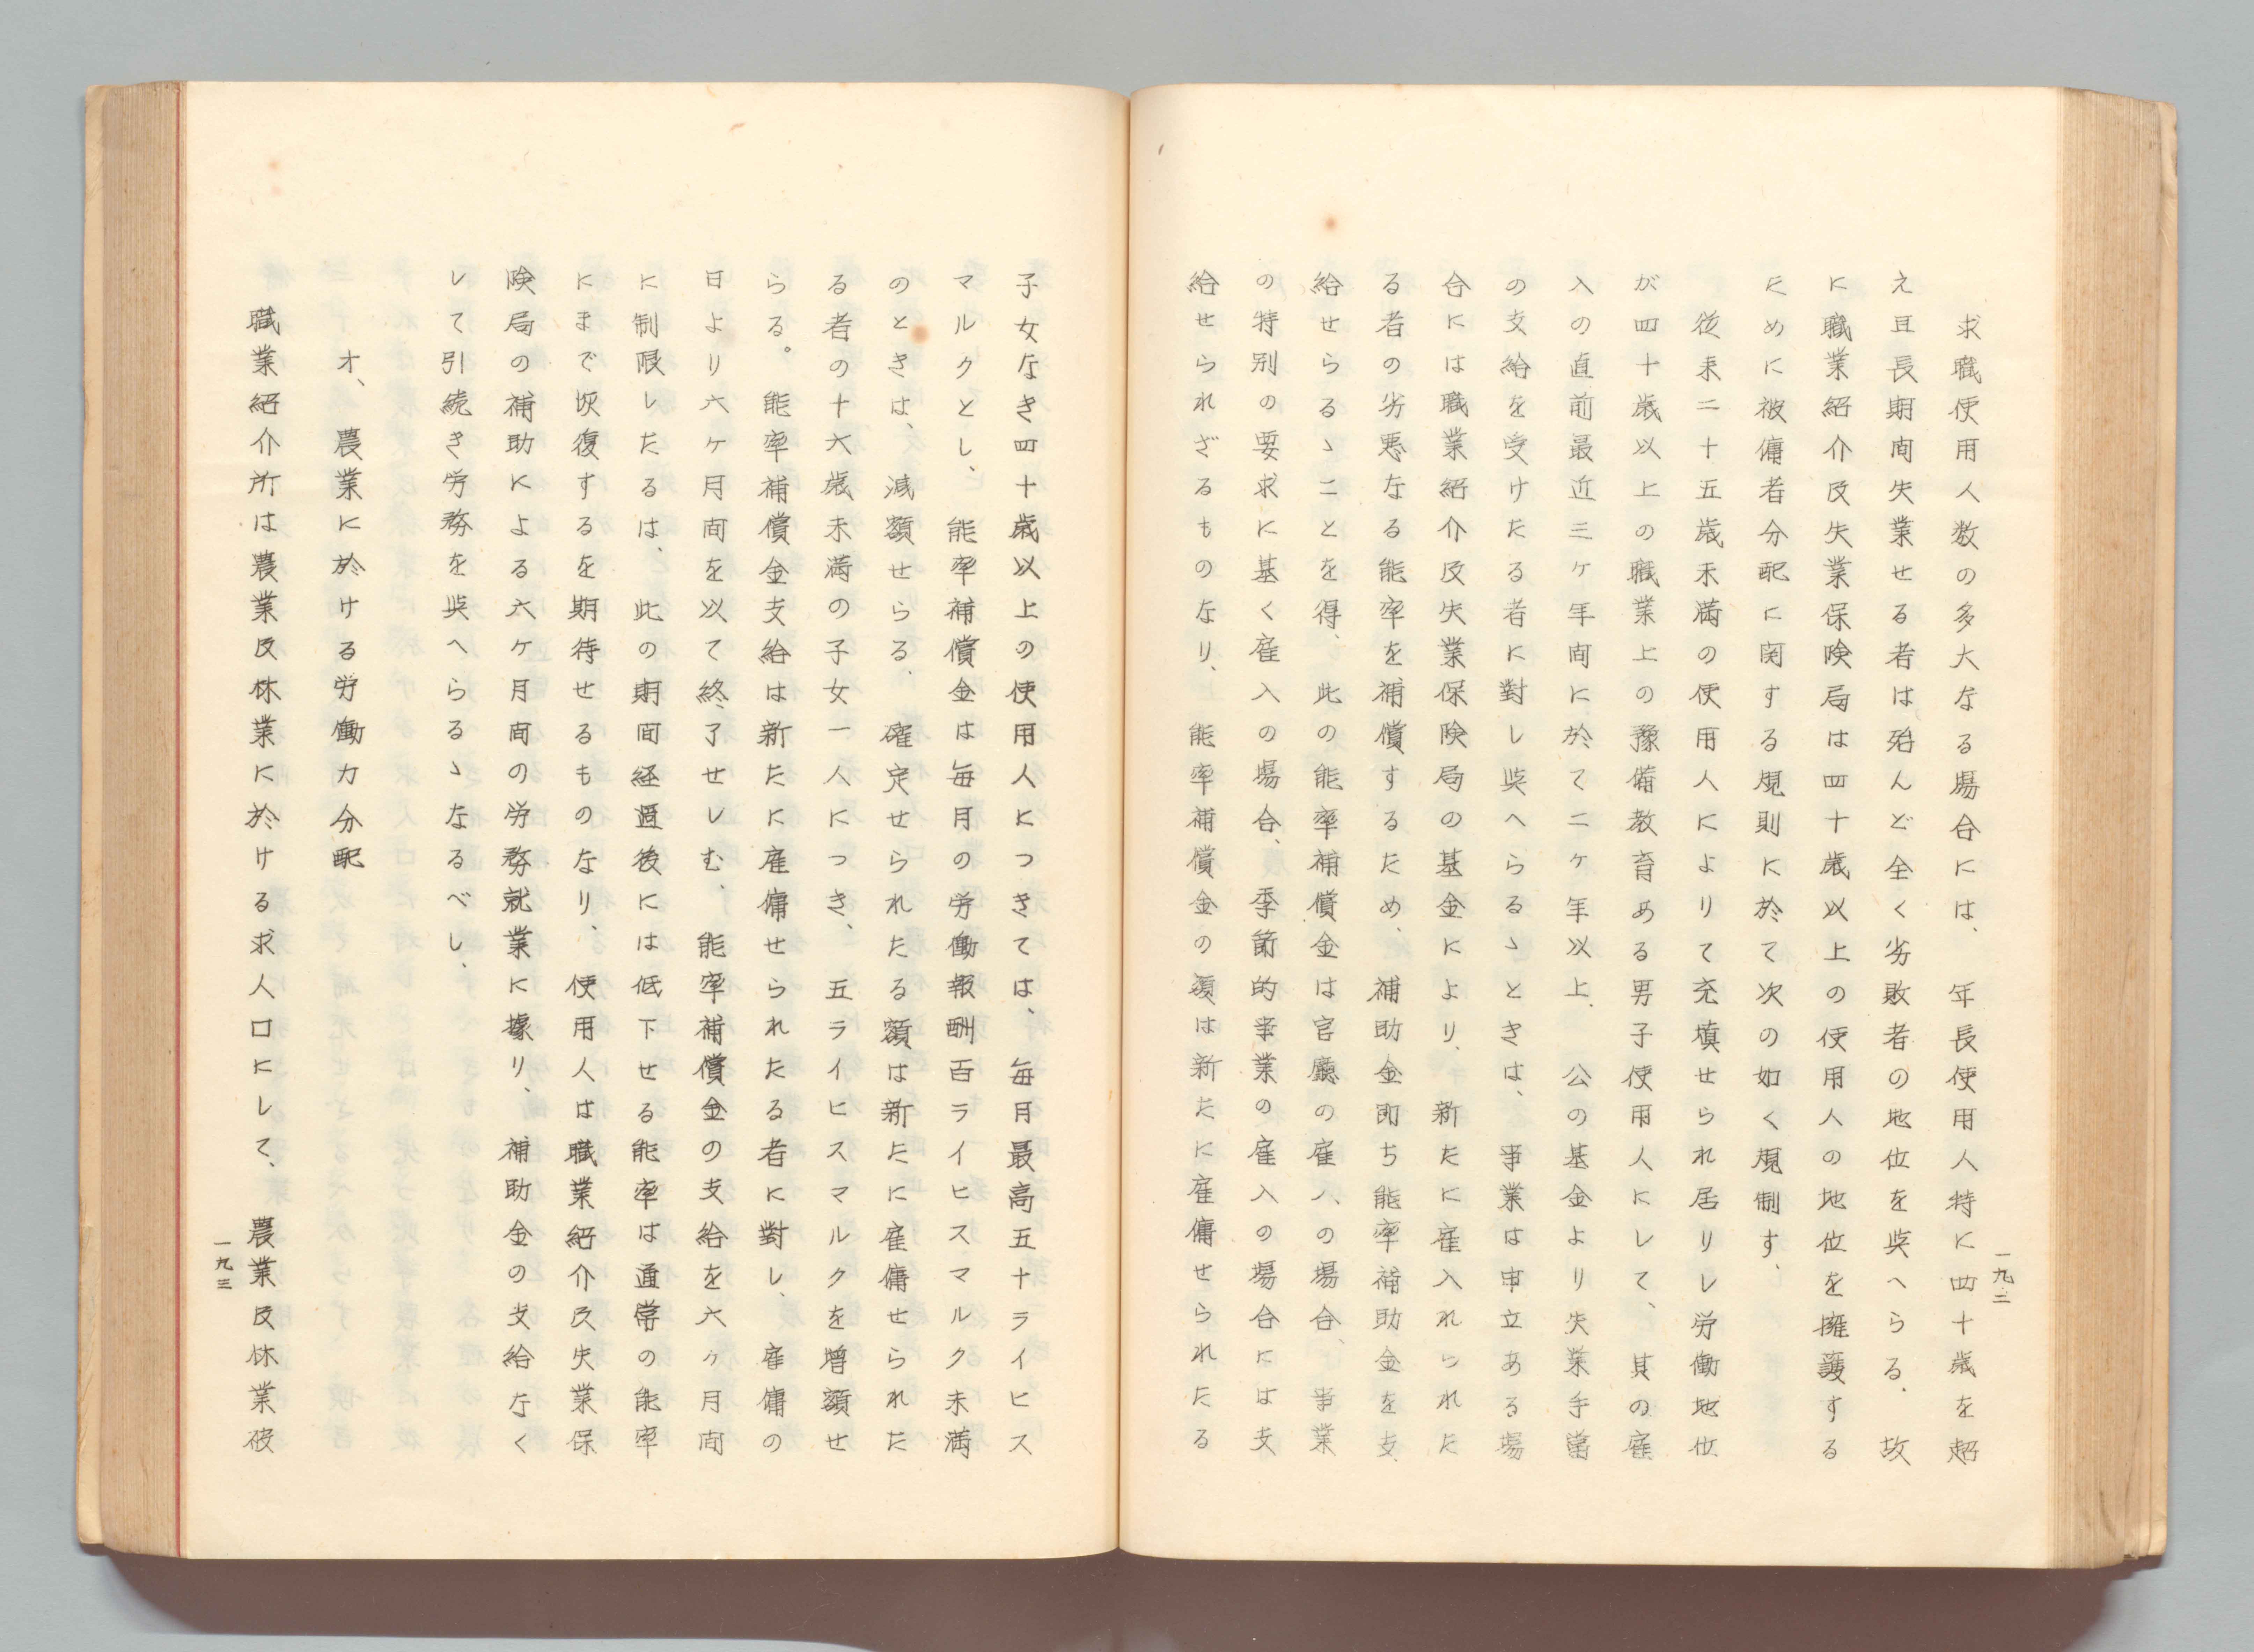 一九二
求職使用人数の多大なる場合には、年長使用人特に四十歳を超
え且長期間失業せる者は殆んど全く劣敗者の地位を与へらる、故
に職業紹介及失業保険局は四十歳以上の使用人の地位を擁護する
ために被傭者分配に関する規則に於て次の如く規制す、
従来二十五歳未満の使用人によりて充填せられ居りし労働地位
が四十歳以上の職業上の豫備教育ある男子使用人にして、其の雇
入の直前最近三ヶ年間に於て二ヶ年以上、公の基金より失業手當
の支給を受けたる者に對し与へらるゝときは、事業は申立ある場
合には職業紹介及失業保険局の基金により、新たに雇入れられた
る者の劣悪なる能率を補償するため、補助金即ち能率補助金を支
給せらるゝことを得、此の能率補償金は官廳の雇入の場合、事業
の特別の要求に基く雇入の場合、季節的事業の雇入の場合には支
給せられざるものなり、能率補償金の額は新たに雇傭せられたる
子女なき四十歳以上の使用人につきては、毎月最高五十ライヒス
マルクとし、能率補償金は毎月の労働報酬百ライヒスマルク未満
のときは、減額せらる、確定せられたる額は新たに雇傭せられた
る者の十六歳未満の子女一人につき、五ライヒスマルクを増額せ
らる。能率補償金支給は新たに雇傭せられたる者に對し、雇傭の
日より六ヶ月間を以て終了せしむ、能率補償金の支給を六ヶ月間
に制限したるは、此の期間経過後には低下せる能率は通常の能率
にまで恢復するを期待せるものなり、使用人は職業紹介及失業保
険局の補助による六ヶ月間の労務就業に據り、補助金の支給なく
して引続き労務を与へらるゝなるべし、
オ、農業に於ける労働力分配
職業紹介所は農業及林業に於ける求人口にして、農業及林業被
一九三